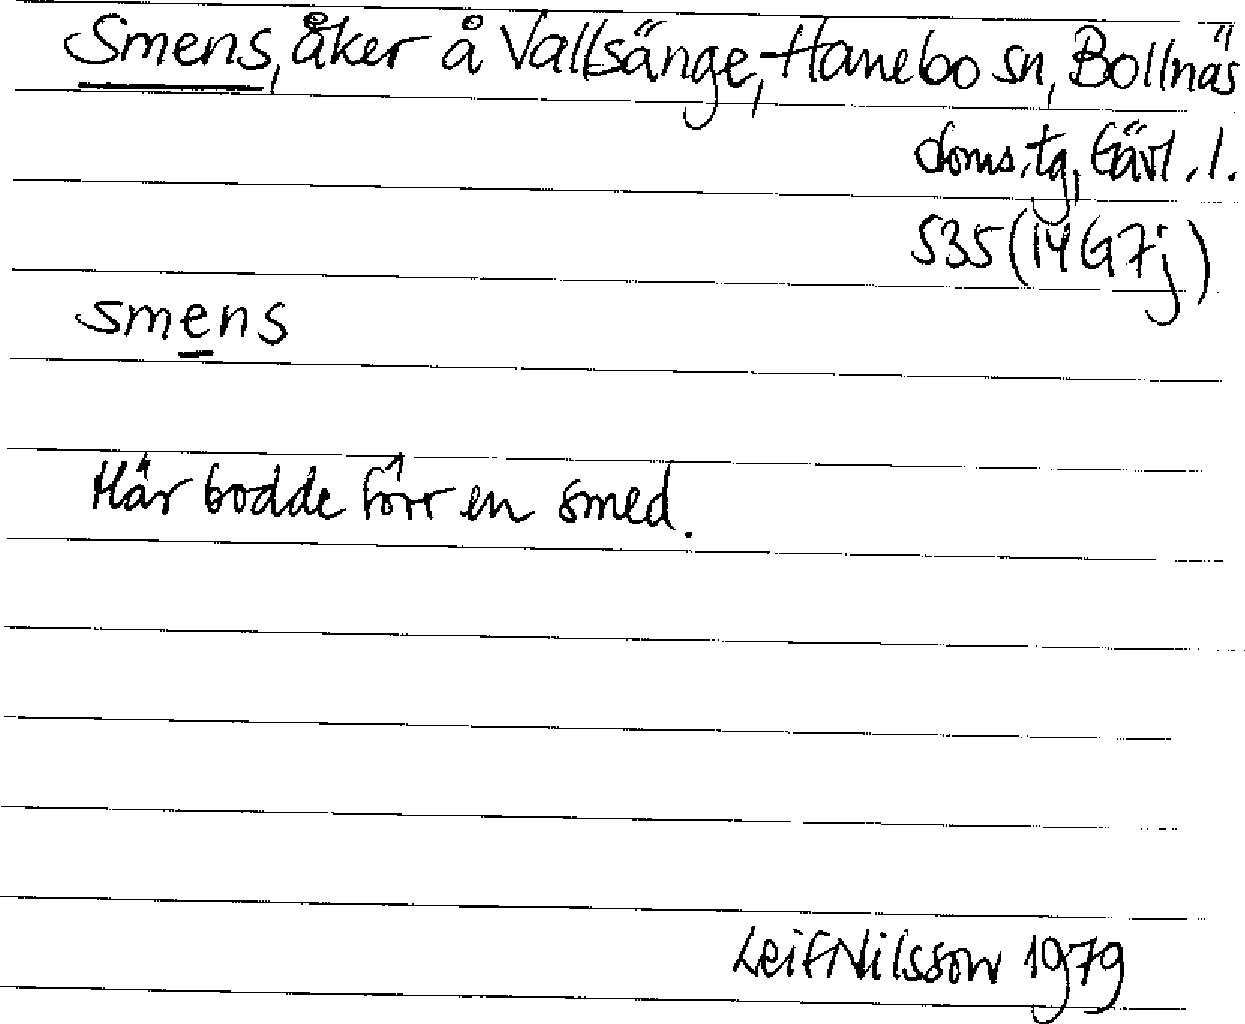 Smens, åker å Vallsänge, Hanebo sn, Bollnäs
doms. tg, Gävl. l.
S35 (14G7j)
smens
Här bodde förr en smed.
Leif Nilsson 1979